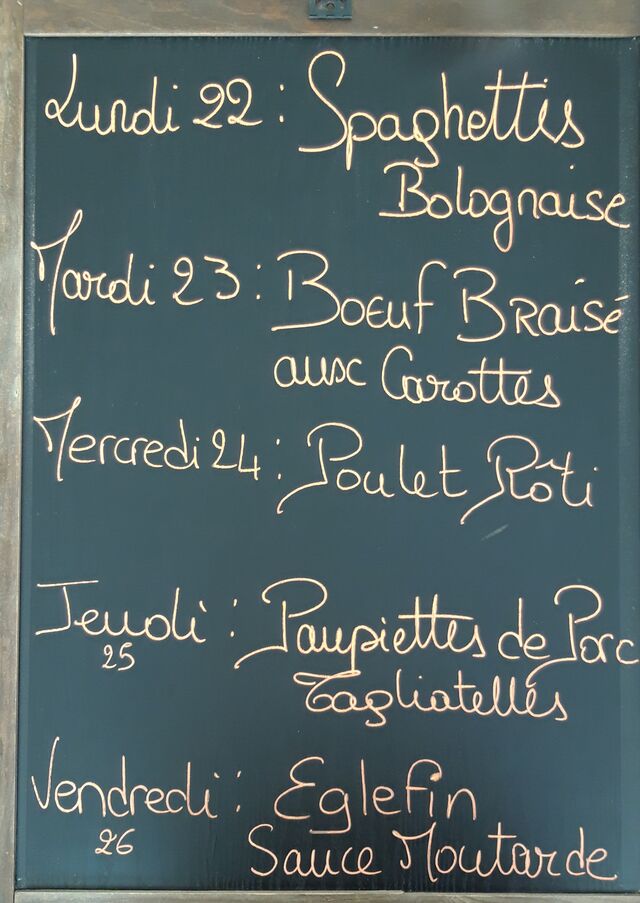 Lundi 22 : Spaghettis
Bolognaise
Mardi 23 : Boeuf Braisé
aux Carottes
Mercredi 24 : Poulet Rôti
Jeudi : Paupiettes de Porc
25 Tagliatelles
Vendredi : Eglefin
26 Sauce Moutarde